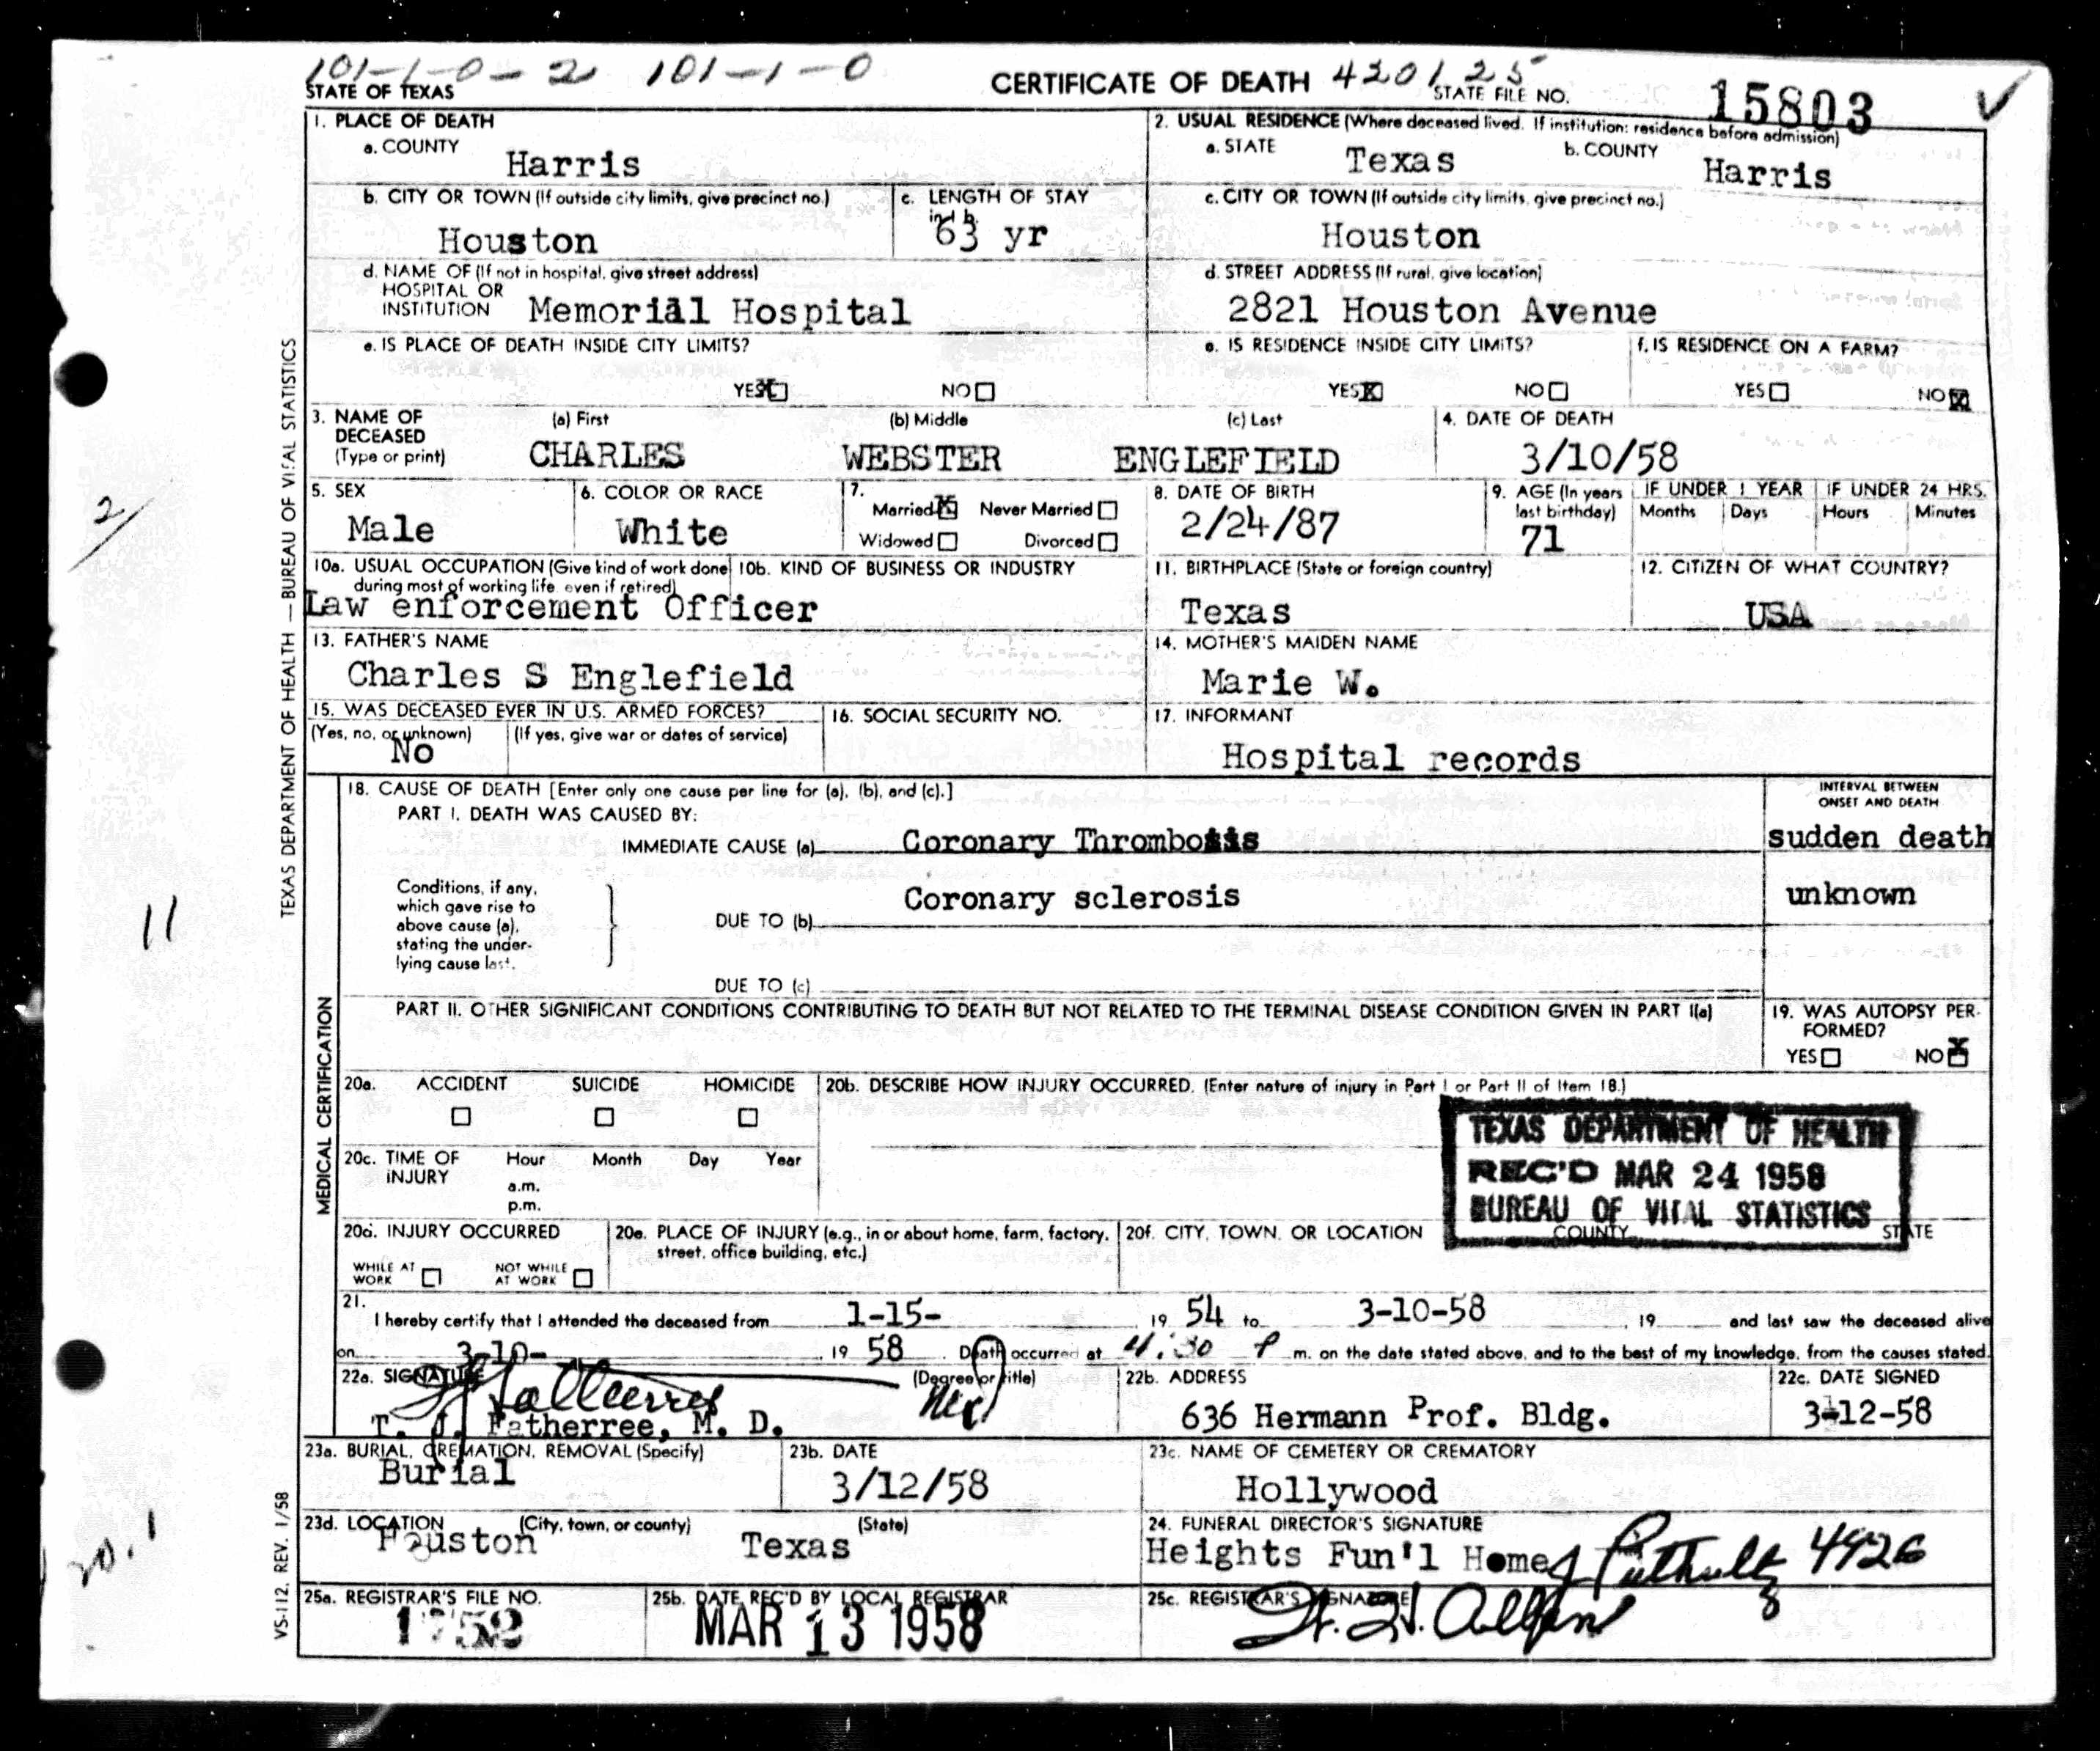 101-1-0-2 101-1-0
STATE OF TEXAS
CERTIFICATE OF DEATH 4201 25
STATE FILE NO. 15803
1. PLACE OF DEATH
a. COUNTY
Harris
2. USUAL RESIDENCE (Where deceased lived. If institution: residence before admission)
a. STATE Texas b. COUNTY Harris
b. CITY OR TOWN (If outside city limits, give precinct no.)
Houston
c. LENGTH OF STAY
in 1 b.
63 yr
c. CITY OR TOWN (If outside city limits, give precinct no.)
Houston
d. NAME OF (If not in hospital, give street address)
HOSPITAL OR
INSTITUTION Memorial Hospital
d. STREET ADDRESS (If rural, give location)
2821 Houston Avenue
e. IS PLACE OF DEATH INSIDE CITY LIMITS?
YES X NO
e. IS RESIDENCE INSIDE CITY LIMITS?
YES X NO
f. IS RESIDENCE ON A FARM?
YES NO X
3. NAME OF
DECEASED
(Type or print)
(a) First (b) Middle (c) Last
CHARLES WEBSTER ENGLEFIELD
4. DATE OF DEATH
3/10/58
5. SEX
Male
6. COLOR OR RACE
White
7.
Married X Never Married
Widowed Divorced
8. DATE OF BIRTH
2/24/87
9. AGE (In years
last birthday)
71
IF UNDER 1 YEAR
Months Days
IF UNDER 24 HRS.
Hours Minutes
10a. USUAL OCCUPATION (Give kind of work done
during most of working life, even if retired)
Law enforcement Officer
10b. KIND OF BUSINESS OR INDUSTRY
11. BIRTHPLACE (State or foreign country)
Texas
12. CITIZEN OF WHAT COUNTRY?
USA
13. FATHER'S NAME
Charles S Englefield
14. MOTHER'S MAIDEN NAME
Marie W.
15. WAS DECEASED EVER IN U.S. ARMED FORCES?
(Yes, no, or unknown) (If yes, give war or dates of service)
No
16. SOCIAL SECURITY NO.
17. INFORMANT
Hospital records
18. CAUSE OF DEATH [Enter only one cause per line for (a), (b), and (c).]
PART I. DEATH WAS CAUSED BY:
IMMEDIATE CAUSE (a) Coronary Thrombosis
INTERVAL BETWEEN
ONSET AND DEATH
sudden death
Conditions, if any,
which gave rise to
above cause (a),
stating the under-
lying cause last.
DUE TO (b) Coronary sclerosis
unknown
DUE TO (c)
PART II. OTHER SIGNIFICANT CONDITIONS CONTRIBUTING TO DEATH BUT NOT RELATED TO THE TERMINAL DISEASE CONDITION GIVEN IN PART I(a)
19. WAS AUTOPSY PER-
FORMED?
YES NO X
20a. ACCIDENT SUICIDE HOMICIDE
20b. DESCRIBE HOW INJURY OCCURRED. (Enter nature of injury in Part I or Part II of Item 18.)
TEXAS DEPARTMENT OF HEALTH
REC'D MAR 24 1958
BUREAU OF VITAL STATISTICS
20c. TIME OF
INJURY
Hour Month Day Year
a.m.
p.m.
20d. INJURY OCCURRED
WHILE AT
WORK
NOT WHILE
AT WORK
20e. PLACE OF INJURY (e.g., in or about home, farm, factory,
street, office building, etc.)
20f. CITY, TOWN, OR LOCATION COUNTY STATE
21.
I hereby certify that I attended the deceased from 1-15- 19 54 to 3-10-58 , 19 and last saw the deceased alive
on 3-10- , 19 58 . Death occurred at 4:30 P m. on the date stated above, and to the best of my knowledge, from the causes stated.
22a. SIGNATURE (Degree or title)
T. J. Fatherree, M. D.
22b. ADDRESS
636 Hermann Prof. Bldg.
22c. DATE SIGNED
3-12-58
23a. BURIAL, CREMATION, REMOVAL (Specify)
Burial
23b. DATE
3/12/58
23c. NAME OF CEMETERY OR CREMATORY
Hollywood
23d. LOCATION (City, town, or county) (State)
Houston Texas
24. FUNERAL DIRECTOR'S SIGNATURE
Heights Fun'l Home 4926
25a. REGISTRAR'S FILE NO.
1752
25b. DATE REC'D BY LOCAL REGISTRAR
MAR 13 1958
25c. REGISTRAR'S SIGNATURE
TEXAS DEPARTMENT OF HEALTH — BUREAU OF VITAL STATISTICS
MEDICAL CERTIFICATION
VS-112. REV. 1/58
2/
11
20.1